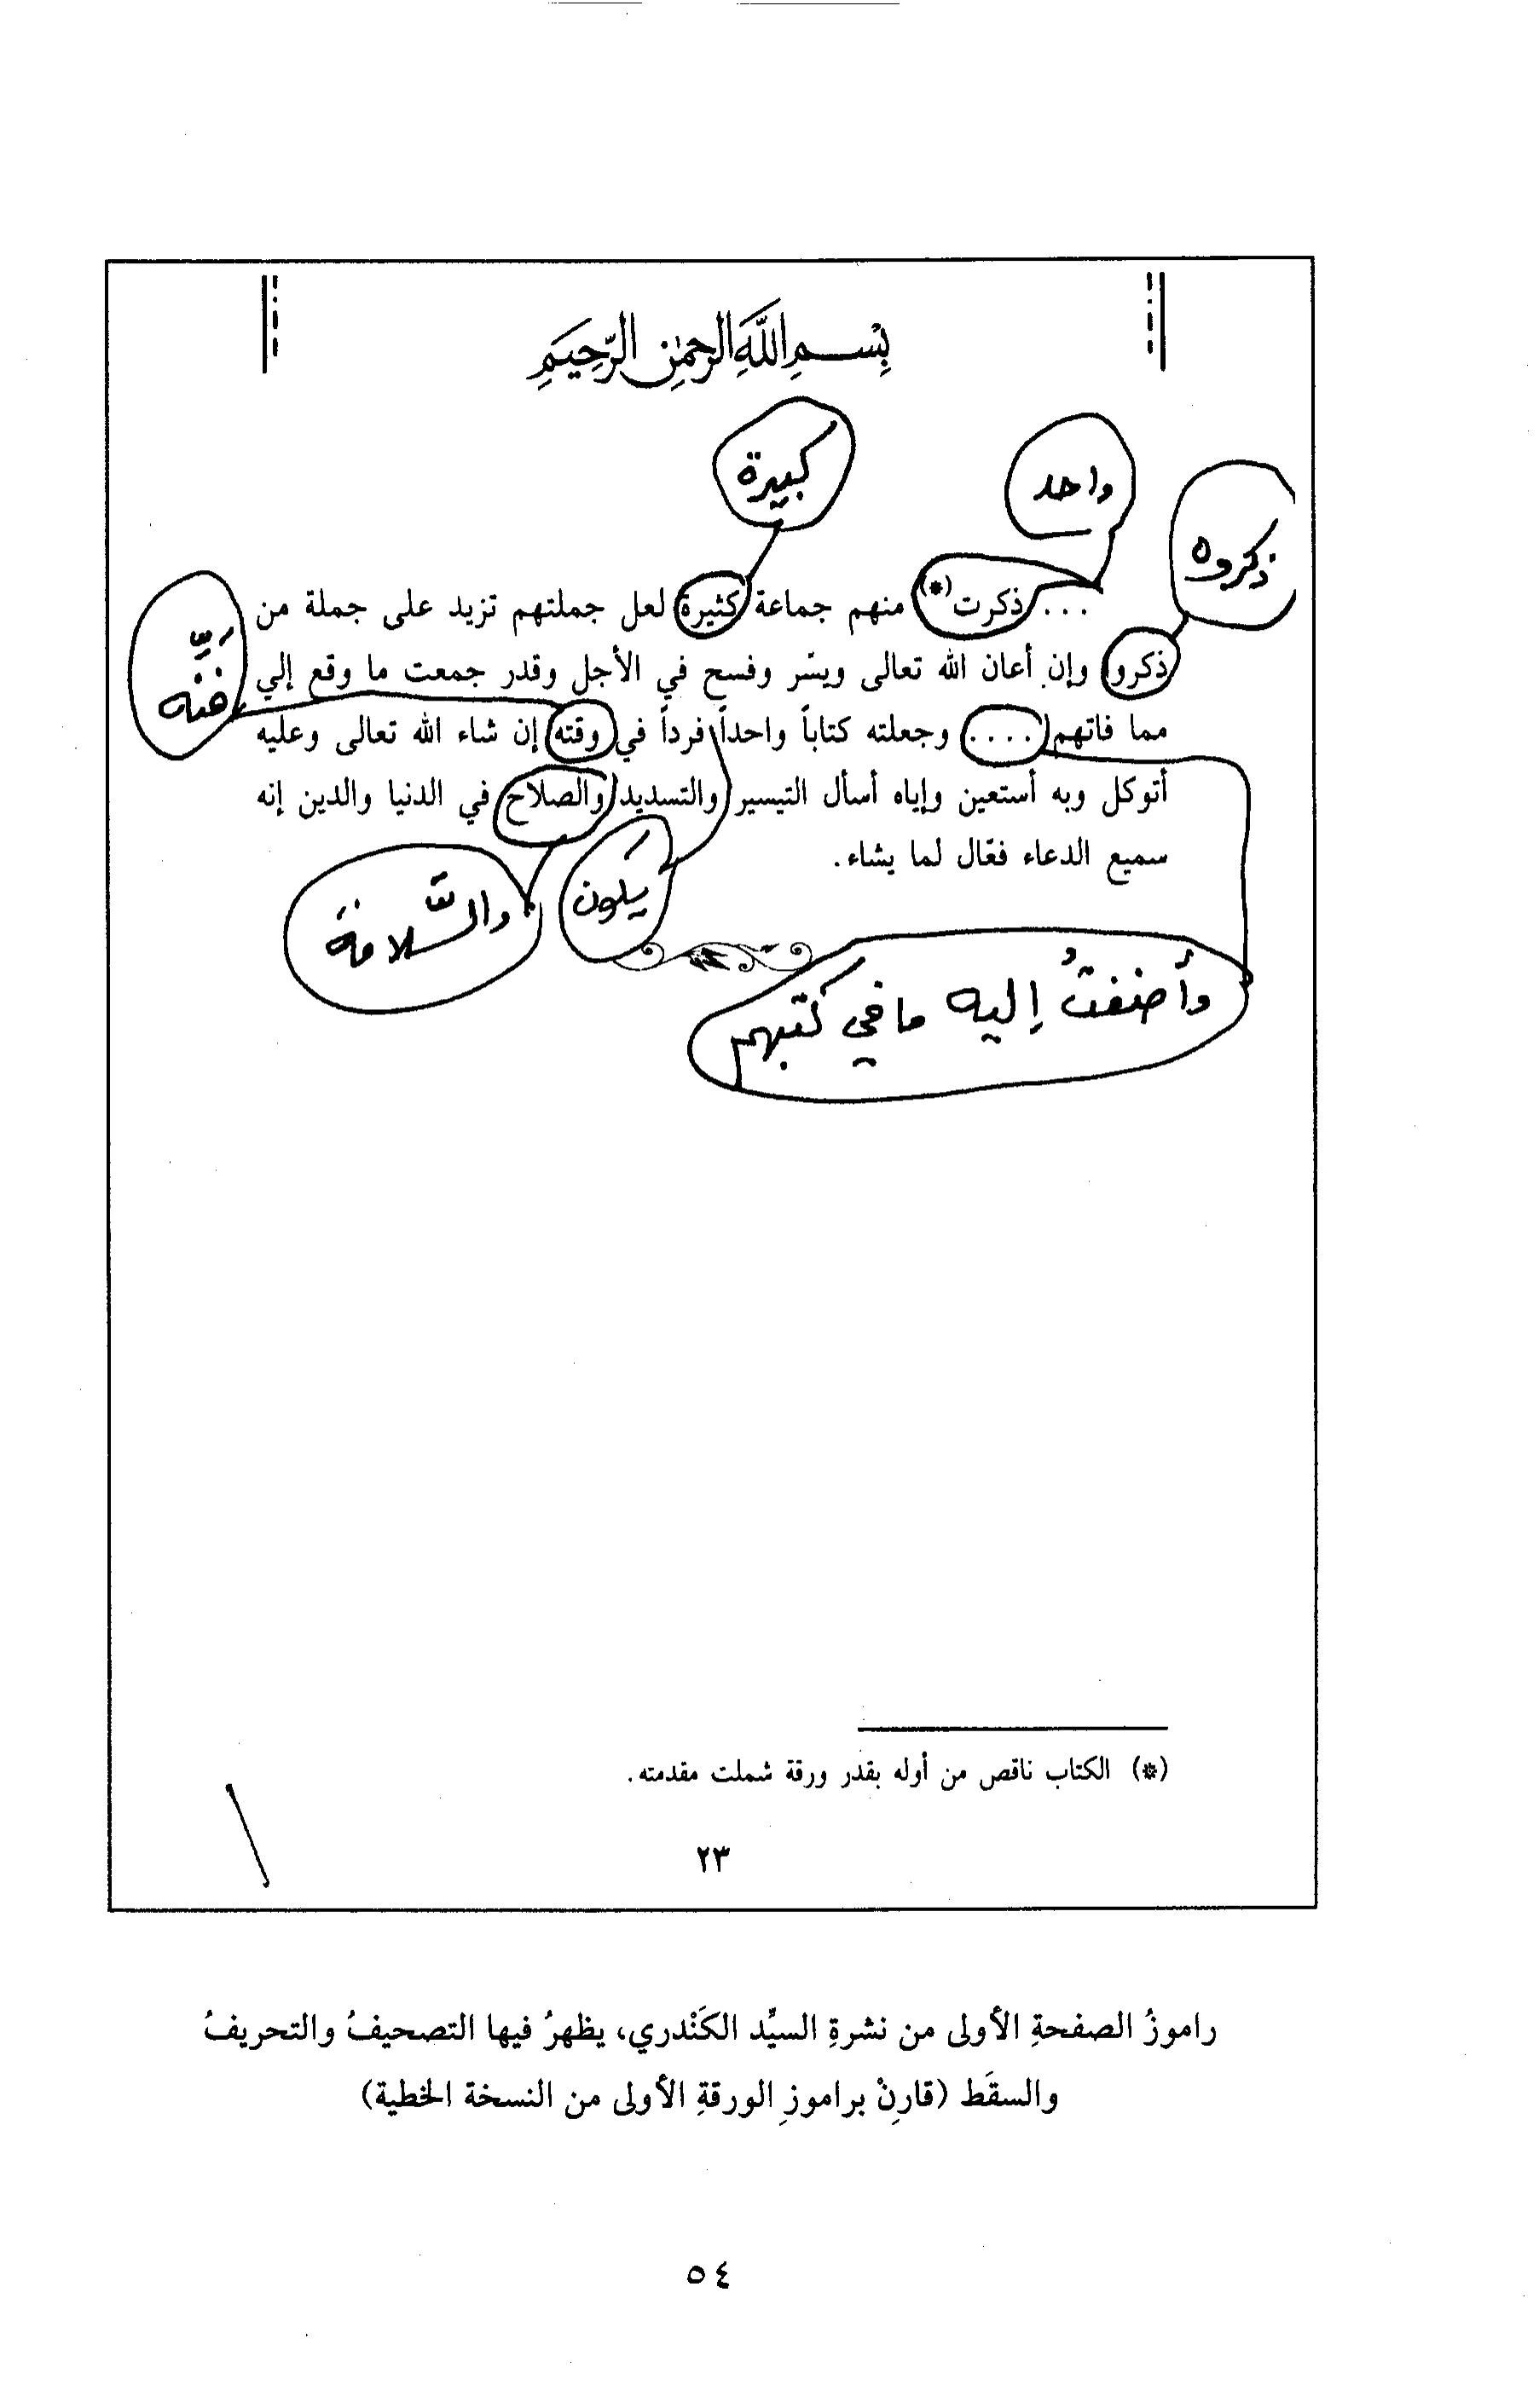 بِسْمِ اللَّهِ الرَّحْمٰنِ الرَّحِيمِ
كبيرة
واحد
ذكروه
... ذكرت(*) منهم جماعة كثيرة لعل جملتهم تزيد على جملة من
ذكروا وإن أعان الله تعالى ويسّر وفسح في الأجل وقدر جمعت ما وقع إلي
فنِّه
مما فاتهم .... وجعلته كتاباً واحداً فرداً في وقته إن شاء الله تعالى وعليه
أتوكل وبه أستعين وإياه أسأل التيسير والتسديد والصلاح في الدنيا والدين إنه
سميع الدعاء فعّال لما يشاء.
يكون
والسَّلامة
وأضفتُ إليه ما في كتبهم
(*) الكتاب ناقص من أوله بقدر ورقة شملت مقدمته.
٢٣
راموزُ الصفحةِ الأولى من نشرةِ السيِّد الكَنْدري، يظهرُ فيها التصحيفُ والتحريفُ
والسقَط (قارنْ براموزِ الورقةِ الأولى من النسخة الخطية)
٥٤